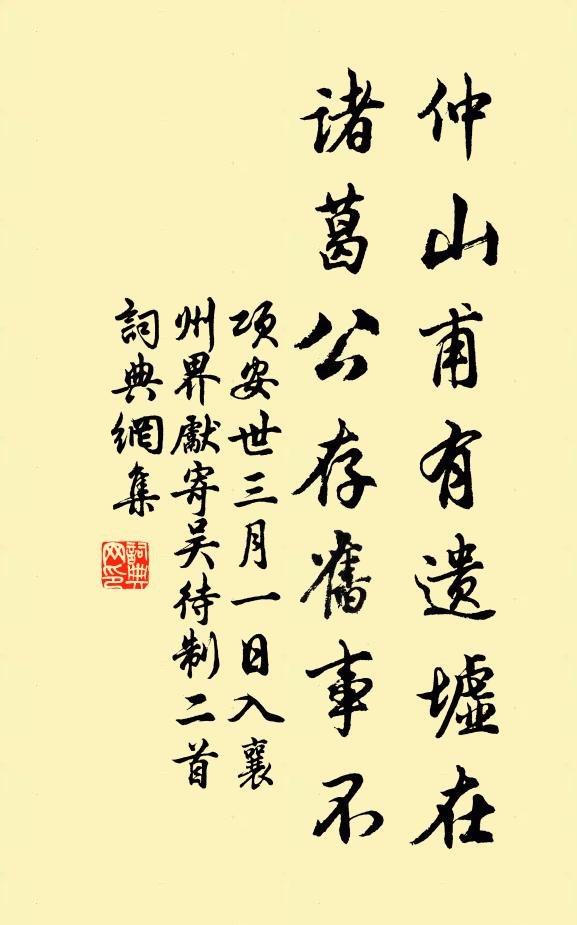 仲山甫有遗墟在
诸葛公存舊事不
项安世三月一日入襄
州界獻寄吴待制二首
詞典網集
詞典
网印